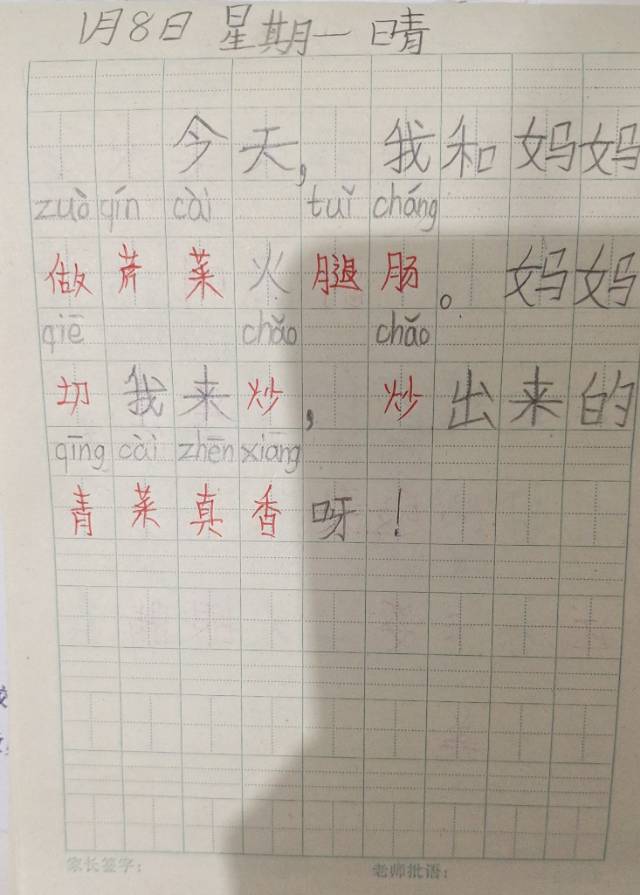 1月8日 星期一 晴
今天，我和妈妈
zuò qín cài tuǐ cháng
做芹菜火腿肠。妈妈
qiē chǎo chǎo
切我来炒，炒出来的
qīng cài zhēn xiāng
青菜真香呀！
家长签字： 老师批语：